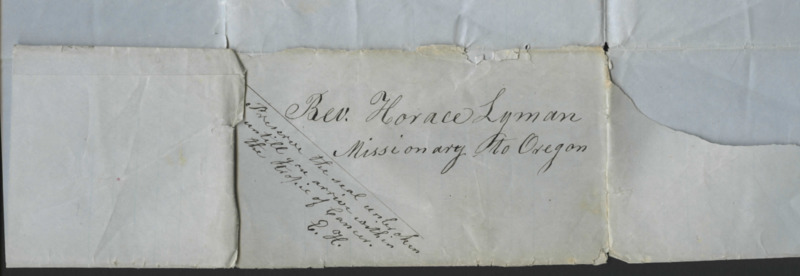 Rev. Horace Lyman
Missionary to Oregon
Preserve the seal unbroken
untill you arrive within
the Tropic of Cancer.
E. H.